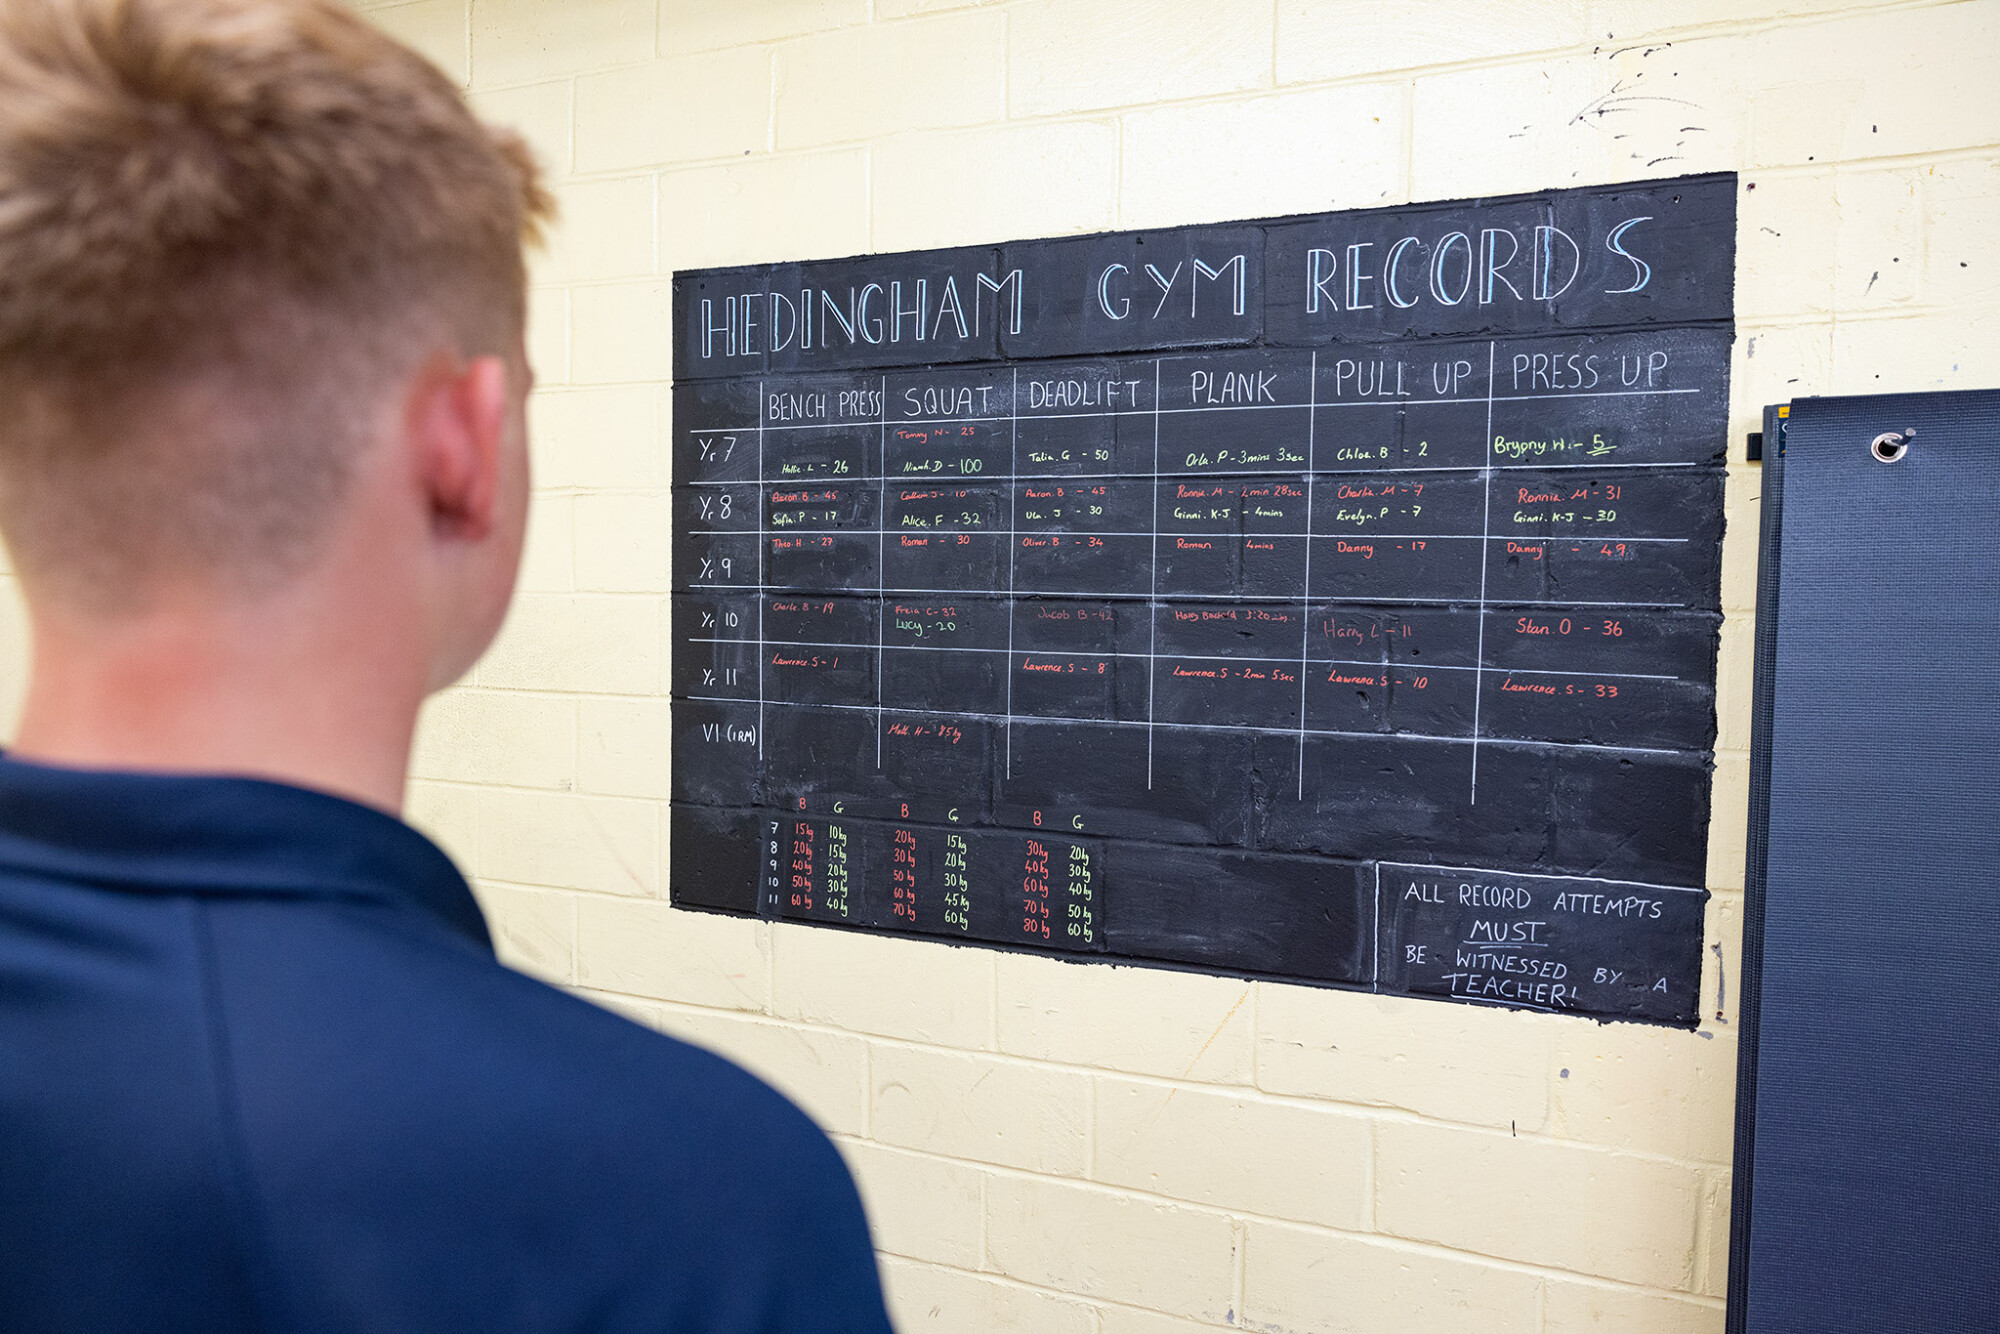 HEDINGHAM GYM RECORDS
BENCH PRESS SQUAT DEADLIFT PLANK PULL UP PRESS UP
Tommy N - 25
Yr 7 Hollie. L - 26 Niamh. D - 100 Talia. G - 50 Orla. P - 3mins 3sec Chloe. B - 2 Bryony. W. - 5
Aaron. B - 45 Callum J - 10 Aaron. B - 45 Ronnie. M - 2min 28sec Charlie. M - 7 Ronnie. M - 31
Yr 8 Sofia. P - 17 Alice. F - 32 J - 30 Ginni. K-J - 4mins Evelyn. P - 7 Ginni. K-J - 30
Theo. H - 27 Roman - 30 Oliver. B - 34 Roman 4mins Danny - 17 Danny - 49
Yr 9
Charlie. B - 19 Freia C - 32 Jacob B - 42 Harry 3:20 Harry L - 11 Stan. O - 36
Yr 10 Lucy - 20
Lawrence. S - 1 Lawrence. S - 8 Lawrence. S - 2min 5sec Lawrence. S - 10 Lawrence. S - 33
Yr 11
VI (1RM) Matt. H - 85kg
B G B G B G
7 15kg 10kg 20kg 15kg 30kg 20kg
8 20kg 15kg 30kg 20kg 40kg 30kg
9 40kg 20kg 50kg 30kg 60kg 40kg
10 50kg 30kg 60kg 45kg 70kg 50kg
11 60kg 40kg 70kg 60kg 80kg 60kg
ALL RECORD ATTEMPTS
MUST
BE WITNESSED BY A
TEACHER!